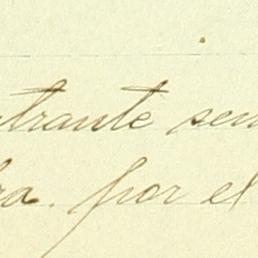 ntrante sem
ra. por el